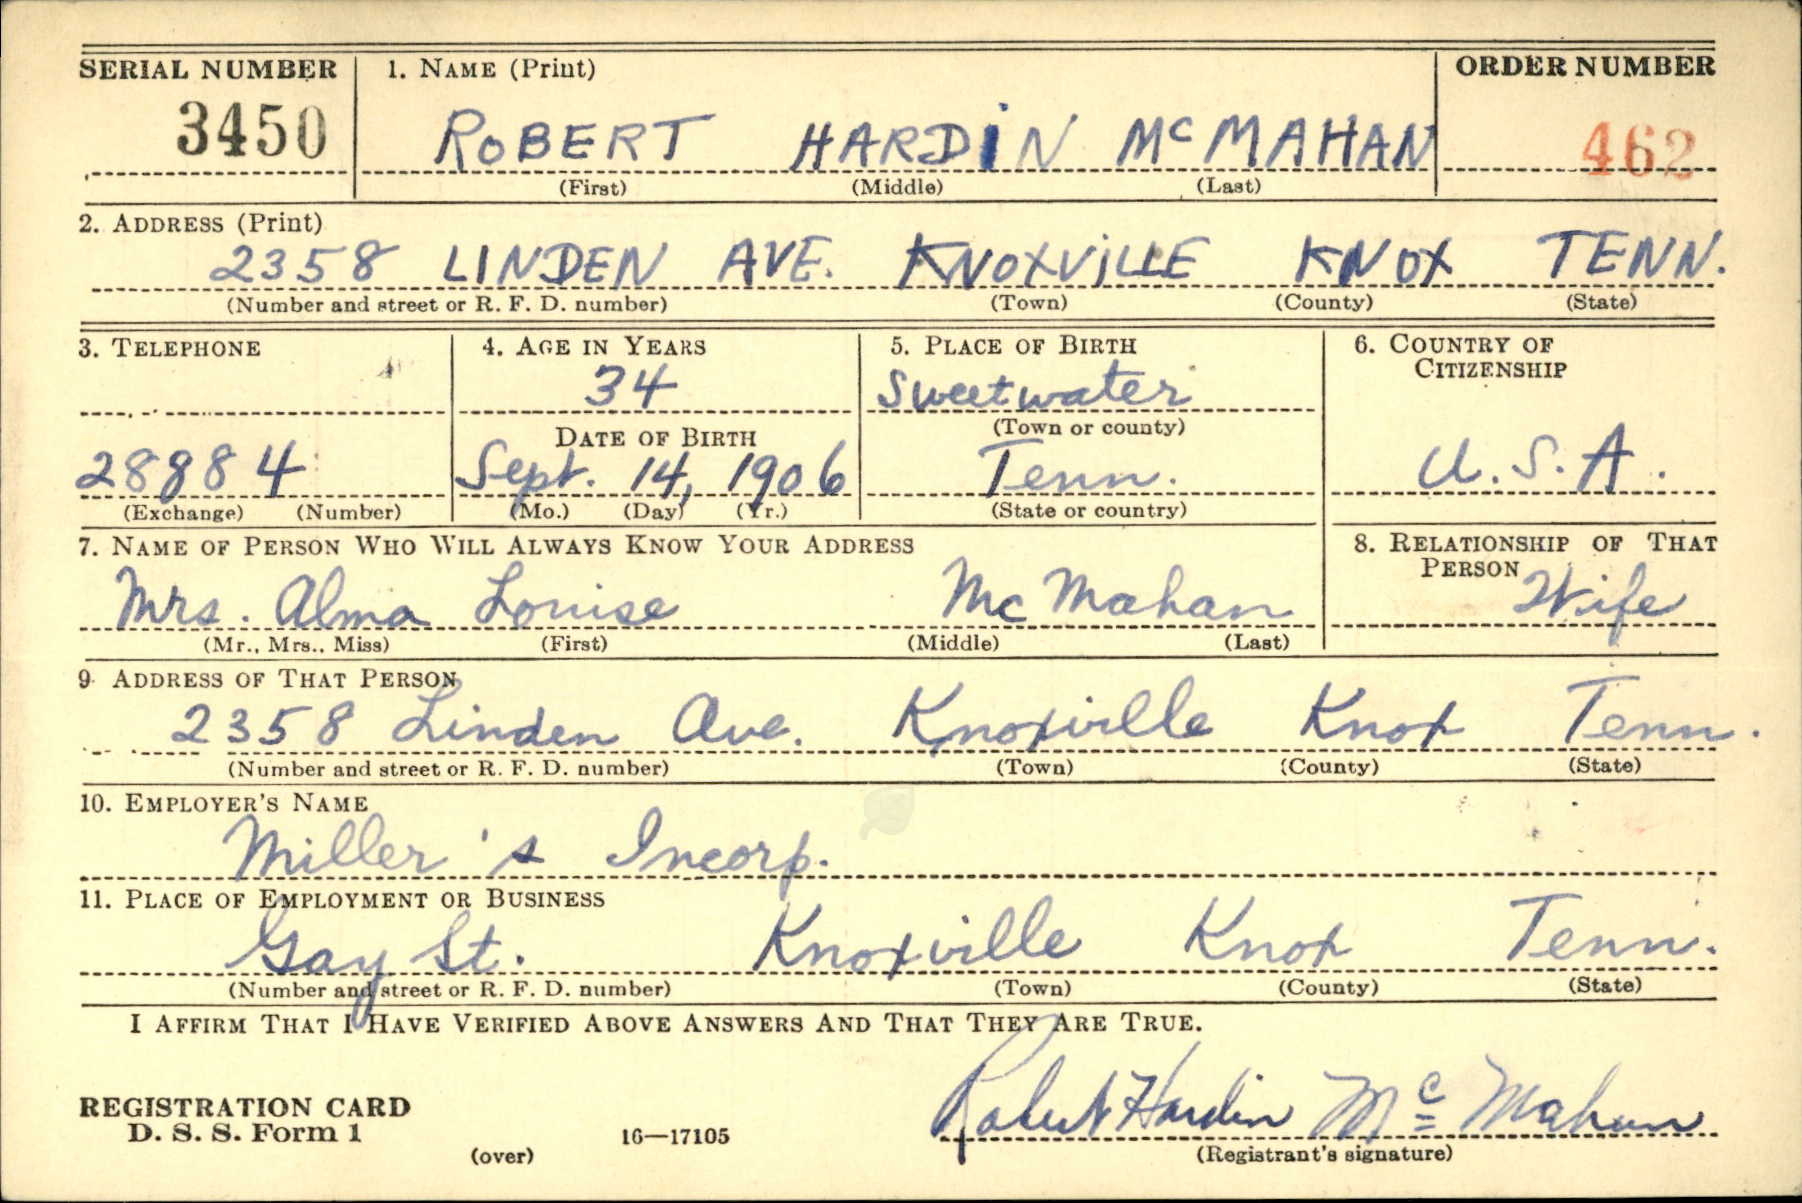 SERIAL NUMBER 1. NAME (Print) ORDER NUMBER
3450 ROBERT HARDIN McMAHAN 462
(First) (Middle) (Last)
2. ADDRESS (Print)
2358 LINDEN AVE. KNOXVILLE KNOX TENN.
(Number and street or R. F. D. number) (Town) (County) (State)
3. TELEPHONE 4. AGE IN YEARS 5. PLACE OF BIRTH 6. COUNTRY OF
CITIZENSHIP
34 Sweetwater
(Town or county)
DATE OF BIRTH
28884 Sept. 14, 1906 Tenn. U.S.A.
(Exchange) (Number) (Mo.) (Day) (Yr.) (State or country)
7. NAME OF PERSON WHO WILL ALWAYS KNOW YOUR ADDRESS 8. RELATIONSHIP OF THAT
PERSON
Mrs. Alma Louise McMahan Wife
(Mr., Mrs., Miss) (First) (Middle) (Last)
9. ADDRESS OF THAT PERSON
2358 Linden Ave. Knoxville Knox Tenn.
(Number and street or R. F. D. number) (Town) (County) (State)
10. EMPLOYER'S NAME
Miller's Incorp.
11. PLACE OF EMPLOYMENT OR BUSINESS
Gay St. Knoxville Knox Tenn.
(Number and street or R. F. D. number) (Town) (County) (State)
I AFFIRM THAT I HAVE VERIFIED ABOVE ANSWERS AND THAT THEY ARE TRUE.
Robert Hardin McMahan
REGISTRATION CARD
D. S. S. Form 1 16—17105
(over) (Registrant's signature)